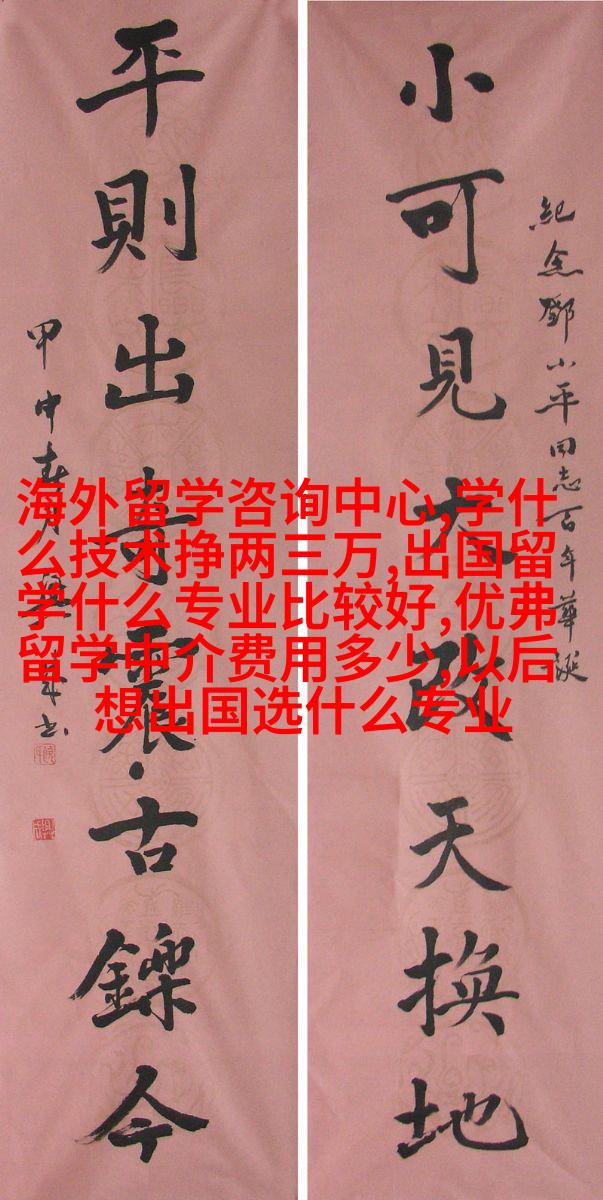 紀念鄧小平同志百年華誕
小可見大改天換地
平則出奇震古鑠今
甲申春月
海外留学咨询中心,学什
么技术挣两三万,出国留
学什么专业比较好,优弗
留学中介费用多少,以后
想出国选什么专业